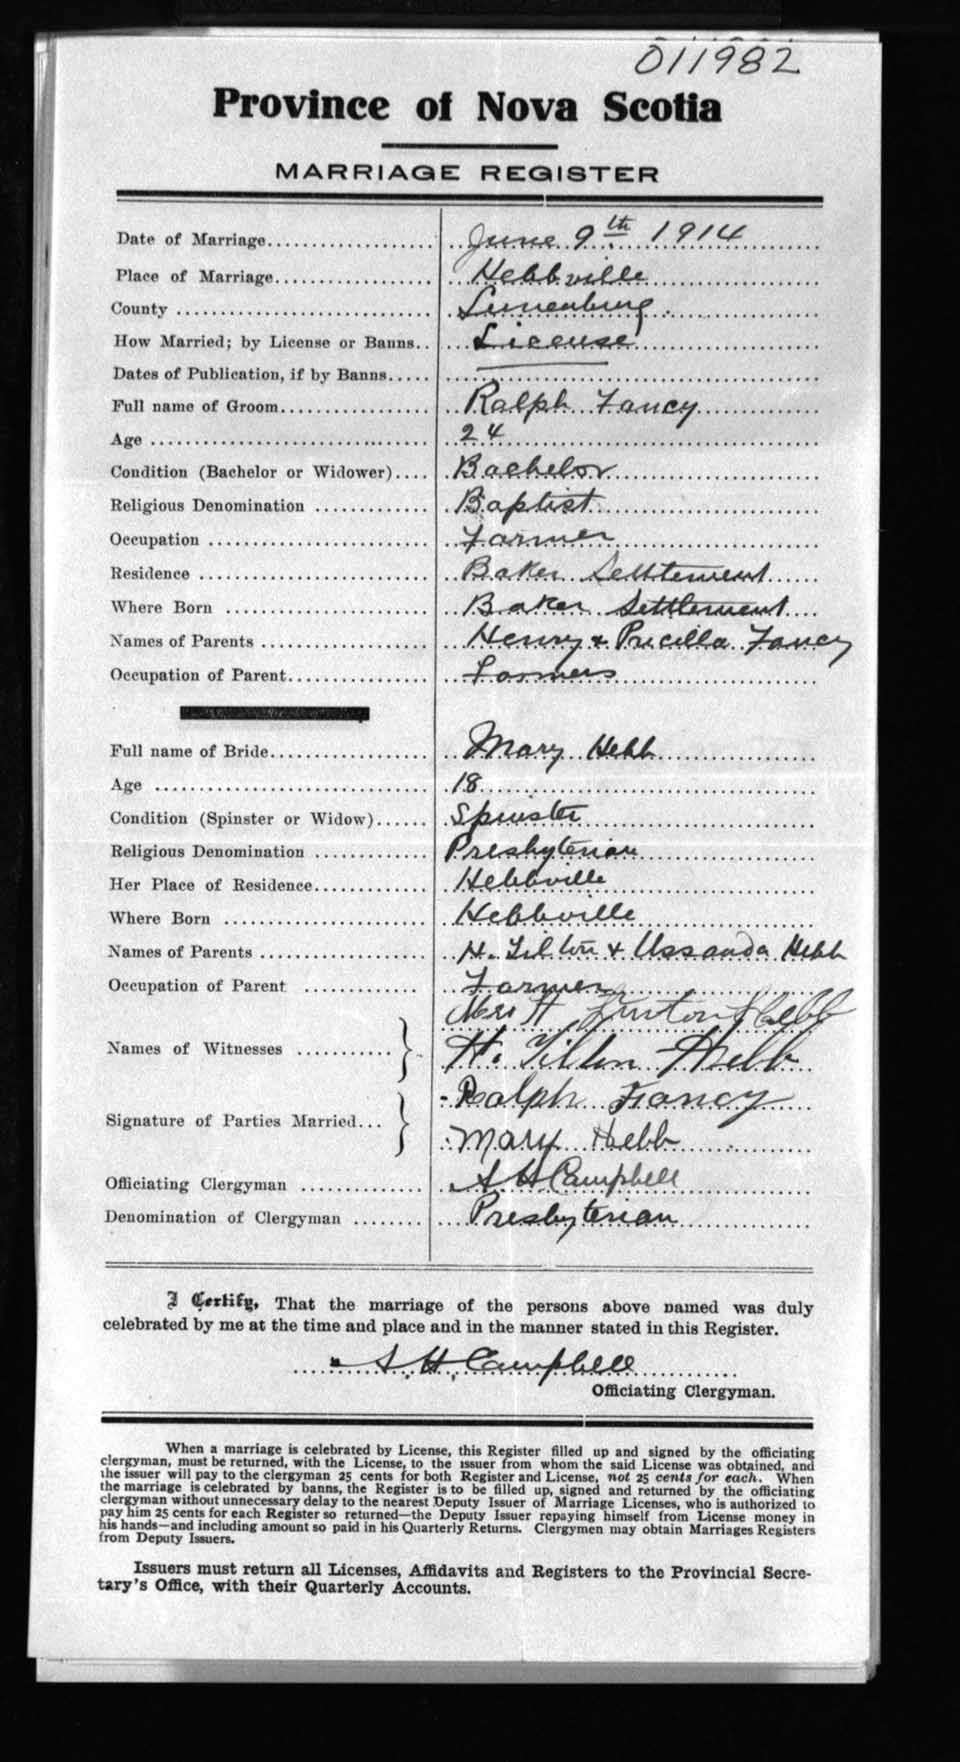 011982
Province of Nova Scotia
MARRIAGE REGISTER
Date of Marriage................... June 9th 1914
Place of Marriage.................. Hebbville
County ............................. Lunenburg
How Married; by License or Banns.. License
Dates of Publication, if by Banns.....
Full name of Groom................. Ralph Fancy
Age ................................ 24
Condition (Bachelor or Widower).... Bachelor
Religious Denomination ............. Baptist
Occupation ......................... Farmer
Residence .......................... Baker Settlement
Where Born ....................... Baker Settlement
Names of Parents ................... Henry & Pricilla Fancy
Occupation of Parent................ Farmers
Full name of Bride.................. Mary Hebb
Age ............................... 18
Condition (Spinster or Widow)...... Spinster
Religious Denomination ............. Presbyterian
Her Place of Residence............. Hebbville
Where Born ....................... Hebbville
Names of Parents ................... H. Tilton & Ussanda Hebb
Occupation of Parent ............. Farmer
Mrs H Hebb
Names of Witnesses ........... H. Hebb
Ralph Fancy
Signature of Parties Married...
Mary Hebb
Officiating Clergyman .............. Campbell
Denomination of Clergyman ........ Presbyterian
I Certify, That the marriage of the persons above named was duly
celebrated by me at the time and place and in the manner stated in this Register.
Campbell
Officiating Clergyman.
When a marriage is celebrated by License, this Register filled up and signed by the officiating
clergyman, must be returned, with the License, to the issuer from whom the said License was obtained, and
the issuer will pay to the clergyman 25 cents for both Register and License, not 25 cents for each. When
the marriage is celebrated by banns, the Register is to be filled up, signed and returned by the officiating
clergyman without unnecessary delay to the nearest Deputy Issuer of Marriage Licenses, who is authorized to
pay him 25 cents for each Register so returned—the Deputy Issuer repaying himself from License money in
his hands—and including amount so paid in his Quarterly Returns. Clergymen may obtain Marriages Registers
from Deputy Issuers.
Issuers must return all Licenses, Affidavits and Registers to the Provincial Secre-
tary's Office, with their Quarterly Accounts.